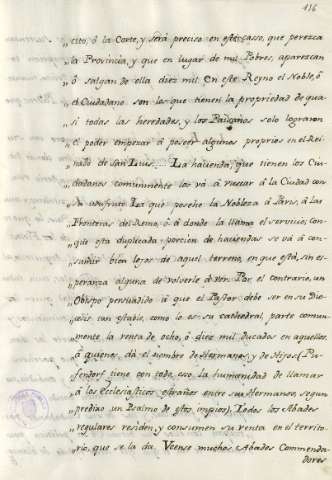 416
"cito, ó la Corte, y será preciso en este casso, que perezca
"la Provincia, y que en lugar de mil Pobres, aparezcan
"ó salgan de ella diez mil. En este Reyno el Noble, ó
"el Ciudadano son los que tienen la propiedad de qua-
"si todas las heredades, y los Paisanos solo lograron
"el poder empezar á poseer algunos proprios en el Rei-
"nado de San Luis. La hacienda, que tienen los Ciu-
"dadanos comunmente los vá á á la Ciudad con
"su usufruto. La que posehe la Nobleza á Paris, á las
"Fronteras del Reino, ó á donde la llama el servicio; con-
"que esta duplicada porción de haciendas se vá á con-
"sumir bien lejos de aquel terreno, en que está, sin es-
"peranza alguna de volverle á ver. Por el contrario, un
"Obispo persuadido á que el Pastor debe ser en su Dio-
"cesis tan estable, como lo es su cathedral, parte comun-
"mente la renta de ocho, ó diez mil ducados en aquellos,
"á quienes dá el nombre de Hermanos, y de Hijos (Puf-
"fendorf tiene con todo eso la humanidad de llamar
"á los Ecclesiasticos estraños entre sus Hermanos, segun
"predixo un Psalmo de estos impios). Todos los Abades
"regulares residen, y consumen su renta en el territo-
"rio, que se la da. Veense muchos Abades Commenda-
dores